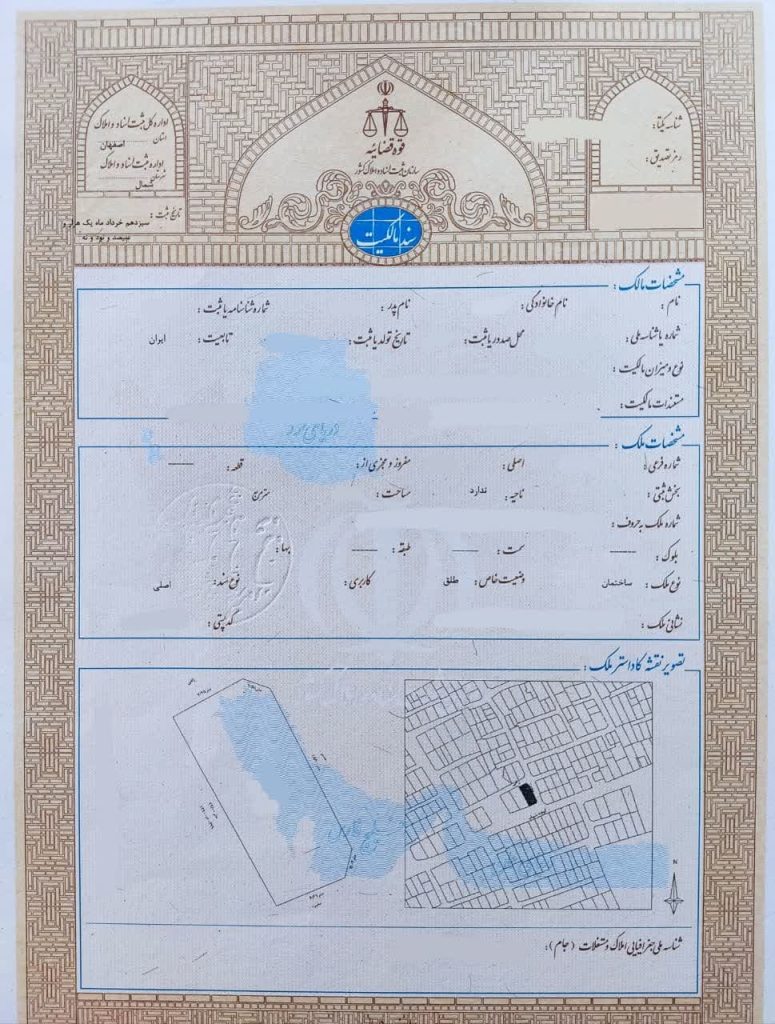 اداره کل ثبت اسناد و املاک
استان اصفهان
اداره ثبت اسناد و املاک
شهرستان شمال
تاریخ ثبت: سیزدهم خرداد ماه یک هزار و
سیصد و نود و نه
قوه قضائیه
سازمان ثبت اسناد و املاک کشور
سند مالکیت
شناسه یکتا:
رمز تصدیق:
مشخصات مالک:
نام: نام خانوادگی: نام پدر: شماره شناسنامه یا ثبت:
شماره یا شناسه ملی: محل صدور یا ثبت: تاریخ تولد یا ثبت: تابعیت: ایران
نوع و میزان مالکیت:
مستندات مالکیت:
دریای خزر
مشخصات ملک:
شماره فرعی: اصلی: مفروز و مجزی از: قطعه: ——
بخش ثبتی: ناحیه: ندارد مساحت: مترمربع
شماره ملک به حروف:
بلوک: —— سمت: —— طبقه: —— بها:
نوع ملک: ساختمان وضعیت خاص: طلق کاربری: نوع سند: اصلی
نشانی ملک: کد پستی:
تصویر نقشه کاداستر ملک:
خلیج فارس
N
شناسه ملی جغرافیایی املاک و مستغلات (جام):